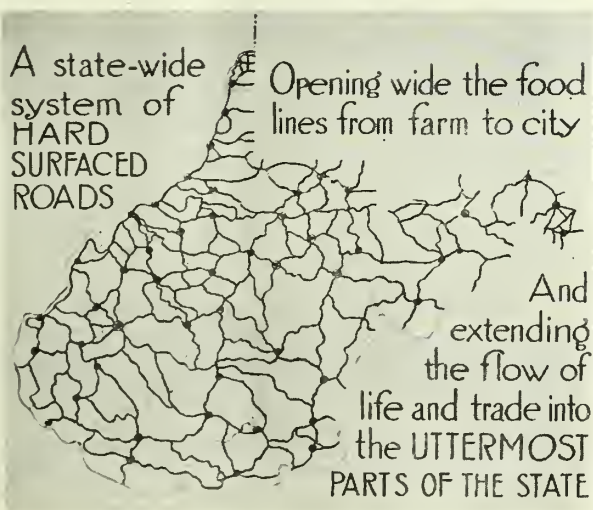 A state-wide
system of
HARD
SURFACED
ROADS
Opening wide the food
lines from farm to city
And
extending
the flow of
life and trade into
the UTTERMOST
PARTS OF THE STATE